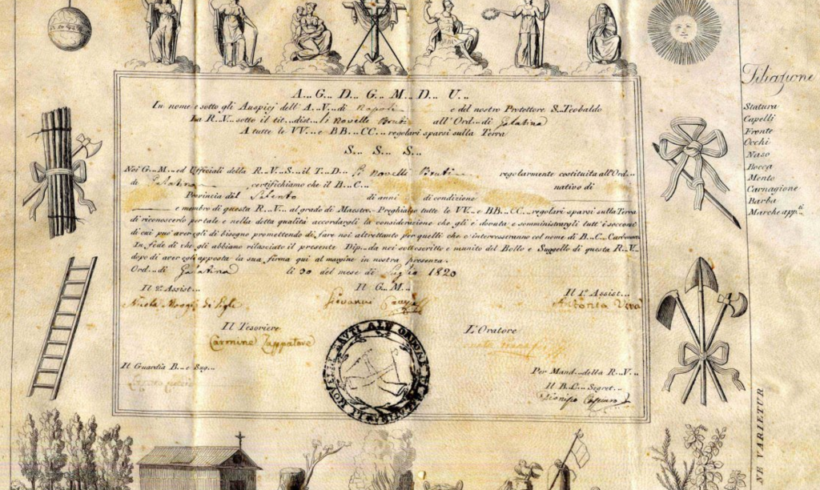 A... G... D... G... M... D... U...
In nome e sotto gli Auspicj dell' A...V... di Napoli e del nostro Protettore S... Teobaldo
La R...V... sotto il tit... dist... I Novelli Bruti all' Ord... di Galatina
A tutte le VV... e BB...CC... regolari sparsi sulla Terra
S... S... S...
Noi G...M... ed Uffiziali della R...V... S... il T...D... I Novelli Bruti regolarmente costituita all' Ord...
di Galatina certifichiamo che il B...C... nativo di
Provincia di di anni di condizione
e membro di questa R...V... al grado di Maestro. Preghiamo tutte le VV... e BB...CC... regolari sparsi sulla Terra
di riconoscerlo per tale e nella detta qualità accordargli la considerazione che gli è dovuta e somministrargli tutt'i soccorsi
di cui può aver egli di bisogno promettendo di fare noi altrettanto per quelli che c'interessiamo col nome di B...C... Carbonaro
In fede di che gli abbiamo rilasciato il presente Dip... da noi sottoscritto e munito del Bollo e Suggello di questa R...V...
dopo di aver egli apposta la sua firma qui al margine in nostra presenza.
Ord... di Galatina li 30 del mese di Luglio 1820
Il 2° Assist... Il G...M... Il 1° Assist...
Giovanni
Il Tesoriere L'Oratore
Carmine Cappatore
Il Guardia B... e Sug... Per Mand... della R...V...
Il B...C... Segret...
Filiazione
Statura
Capelli
Fronte
Occhi
Naso
Bocca
Mento
Carnagione
Barba
Marche app.
NE VARIETUR